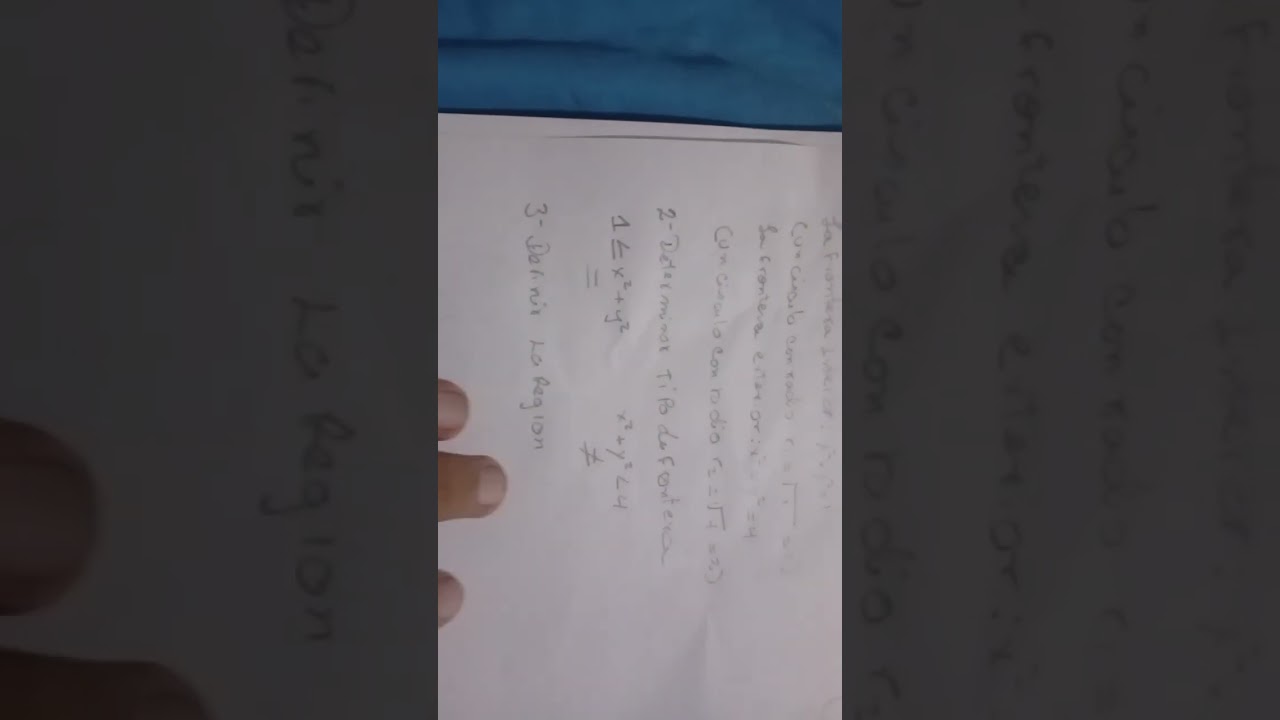 La frontera
(un circulo con radio
La frontera exterior = 4
(un circulo con radio r₂ = √ = 2)
2- Determinar Tipo de Frontera
1 ≤ x² + y² x² + y² < 4
= ≠
3- Definir La Region